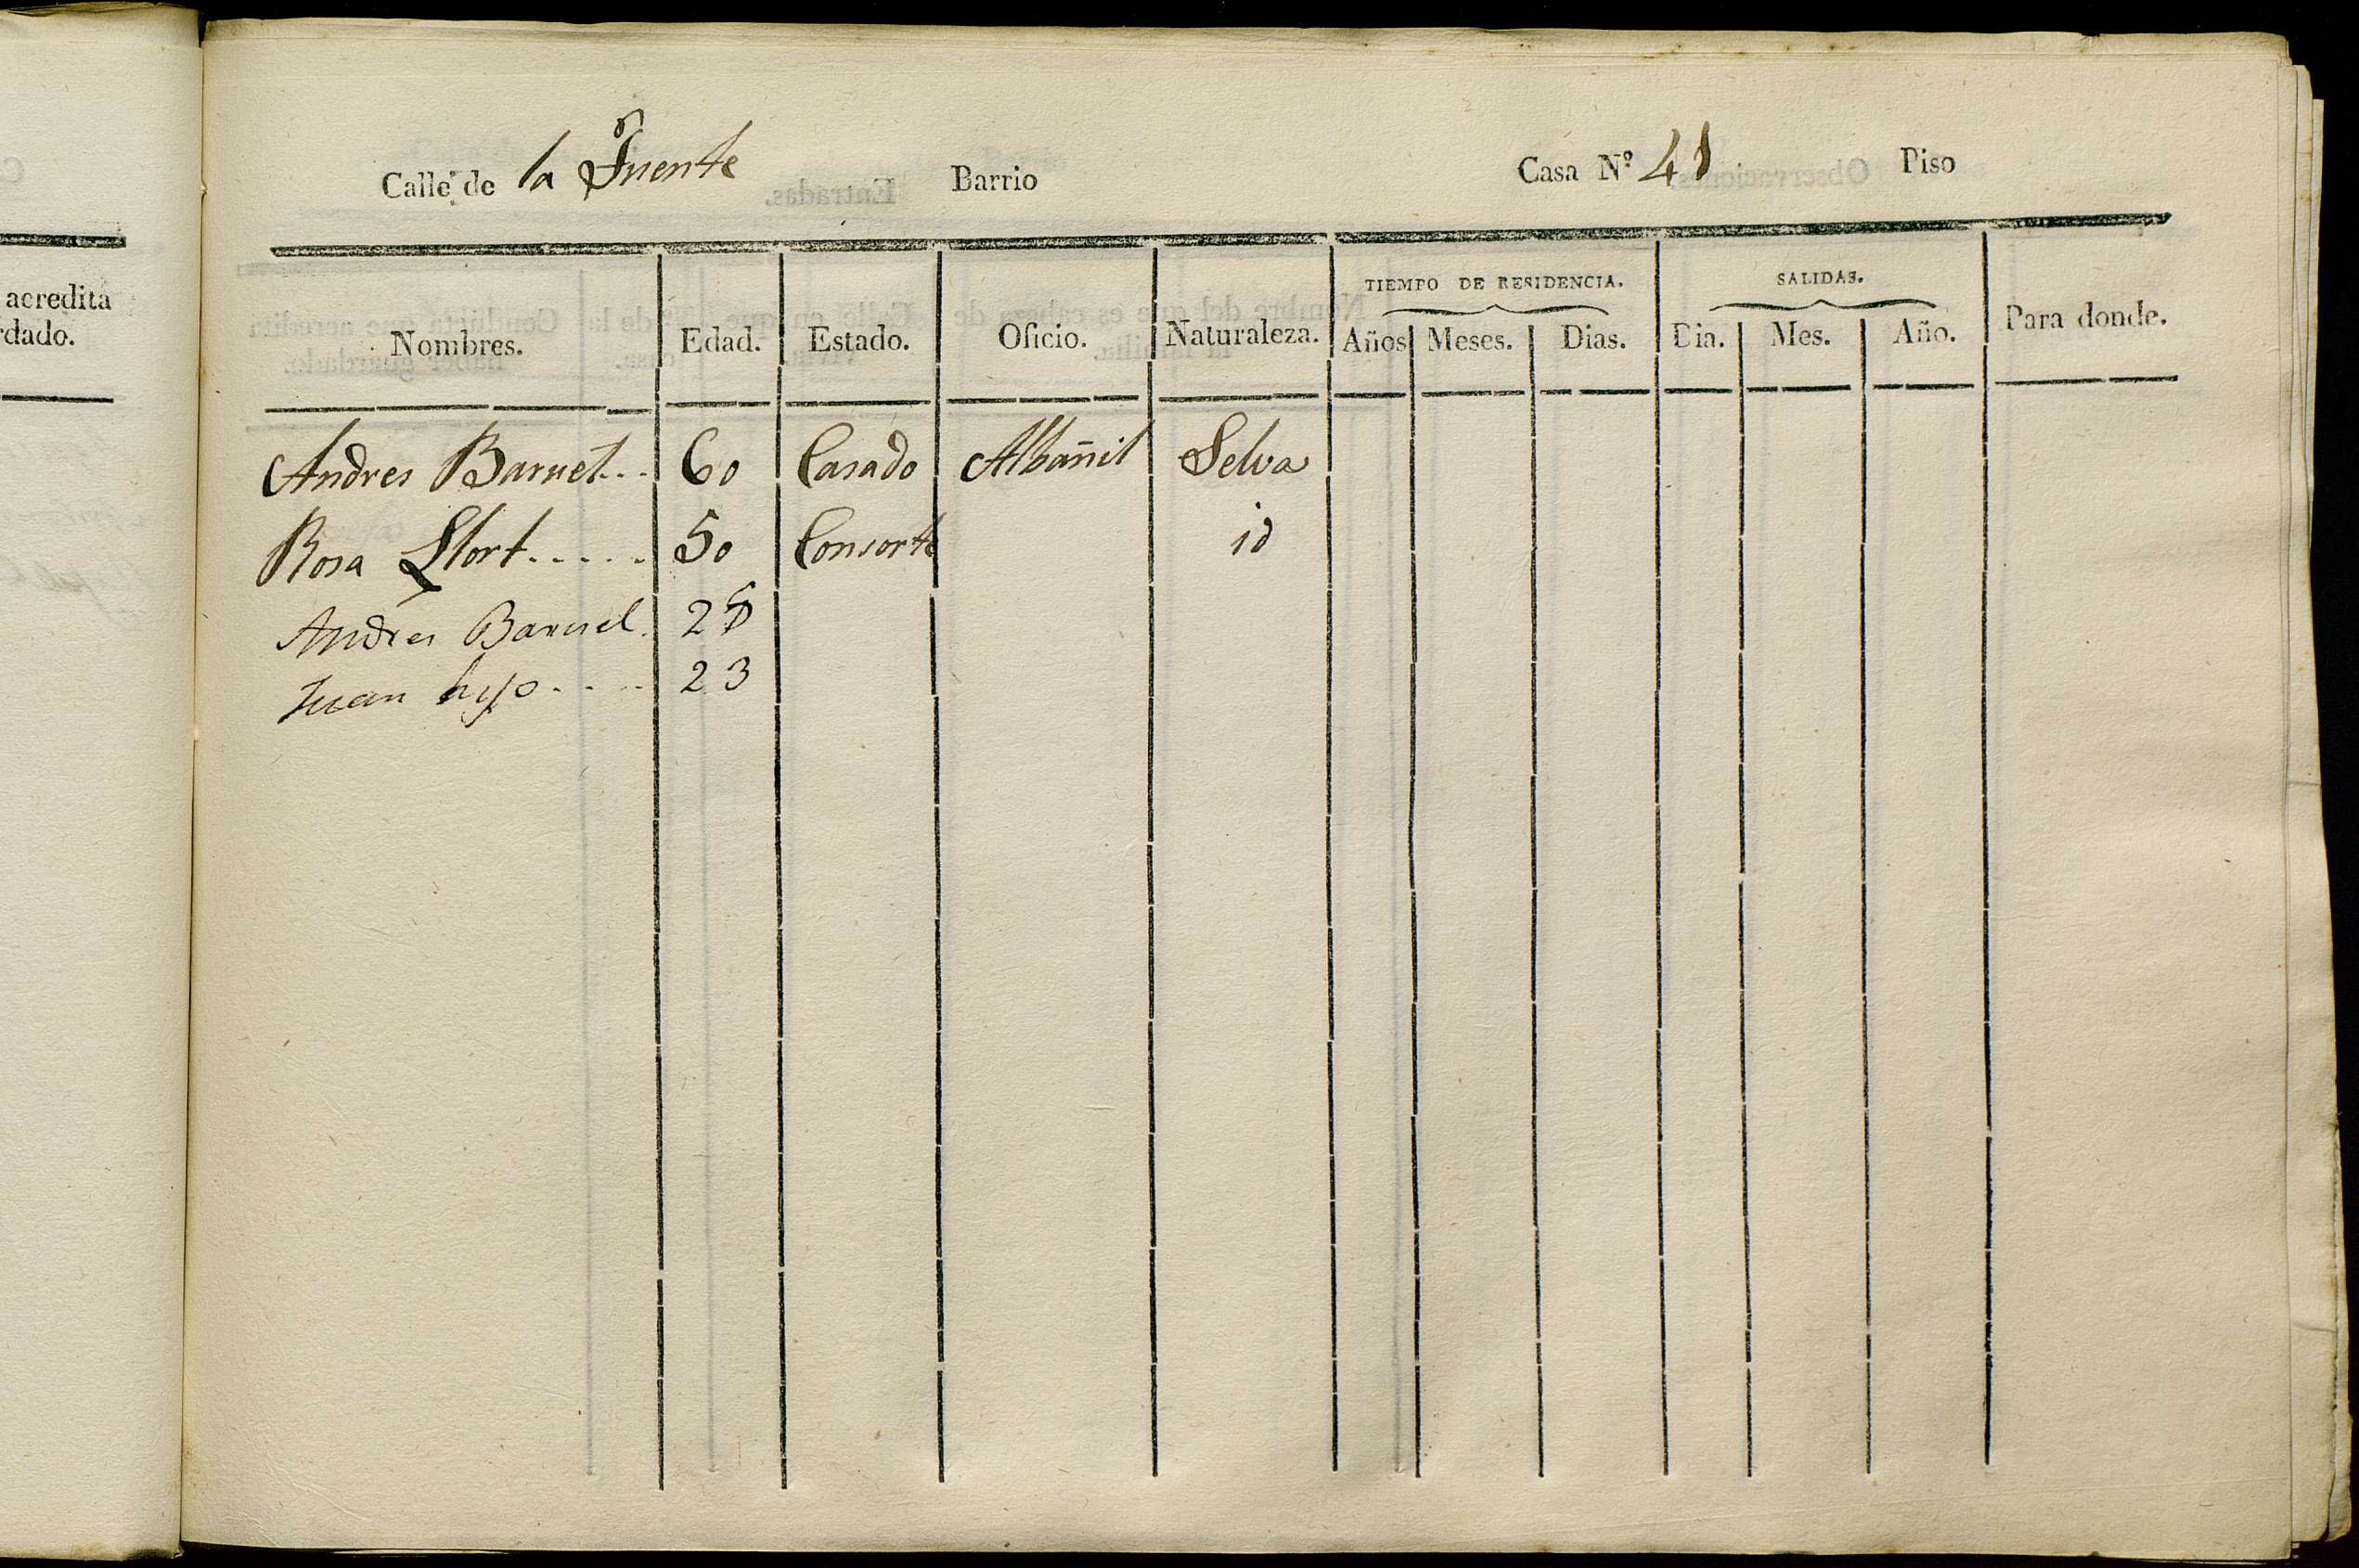 acredita
rdado.
Calle de la Fuente Barrio Casa Nº 41 Piso
TIEMPO DE RESIDENCIA. SALIDAS.
Nombres. Edad. Estado. Oficio. Naturaleza. Años Meses. Dias. Dia. Mes. Año. Para donde.
Andres Baruet... 60 Casado Albañil Selva
Rosa Llort..... 50 Consorte id
Andres Baruel. 25
Juan hijo.... 23